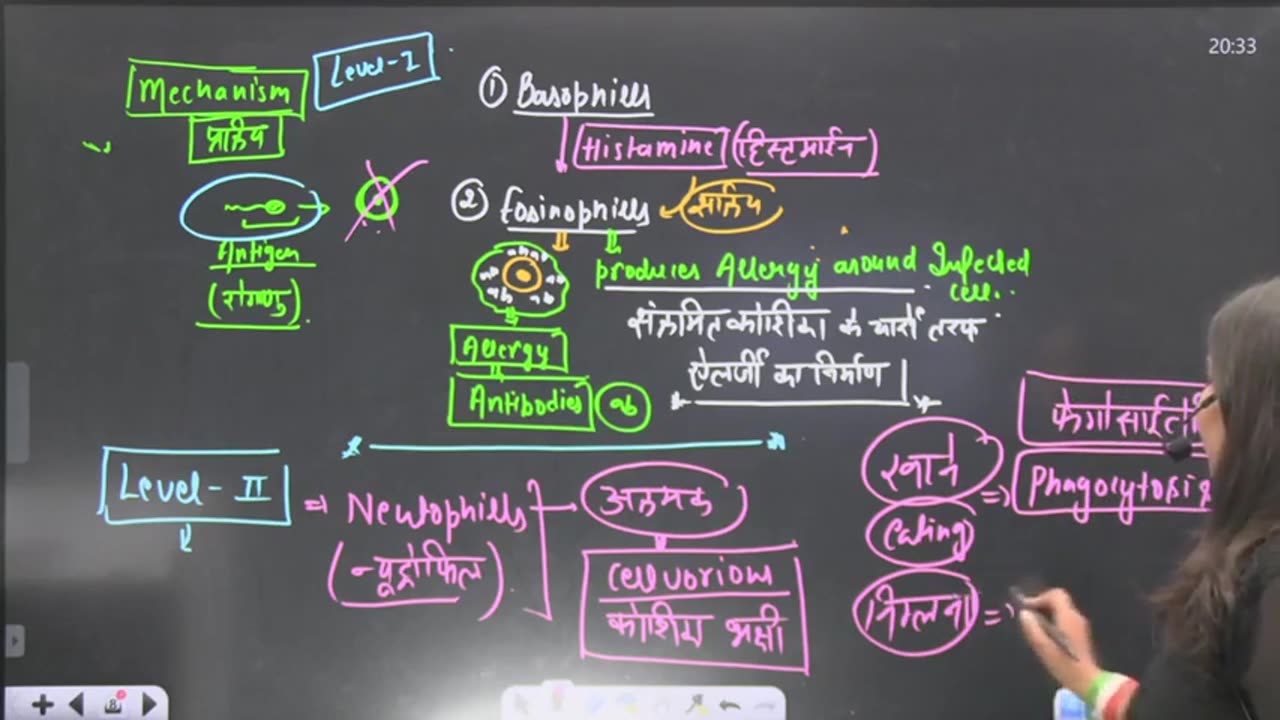 20:33
Mechanism
Level-I
प्रक्रिय
Antigen
(रोगाणु)
① Basophills
Histamine (हिस्टामाईन)
② Eosinophills
सक्रिय
produces Allergy around Infected cell..
संक्रमित कोशिका के चारों तरफ
ऐलर्जी का निर्माण
Allergy
Antibodies ab
Level-II ⇒ Neutrophills
(न्यूट्रोफिल)
cell vorious
कोशिय भक्षी
खाने
eating ⇒
निगलना ⇒
फेगोसाईटो
Phagocytosis